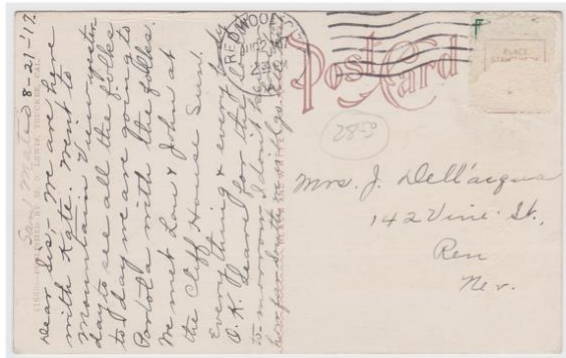 San Mateo 8-21-'17.
Dear Sis,- We are here
with Kate. Went to
Mountain View yester
day to see all the folks
to day we are going to
Portola with the folks.
We met Lou & John at
the Cliff House Sun.
Everything & every body
O.K. Leave for the
to-morrow I don't
Post Card
REDWOOD
PLACE
F
Mrs. J. Dell'acqua
142 Vine St.,
Ren
Nev.